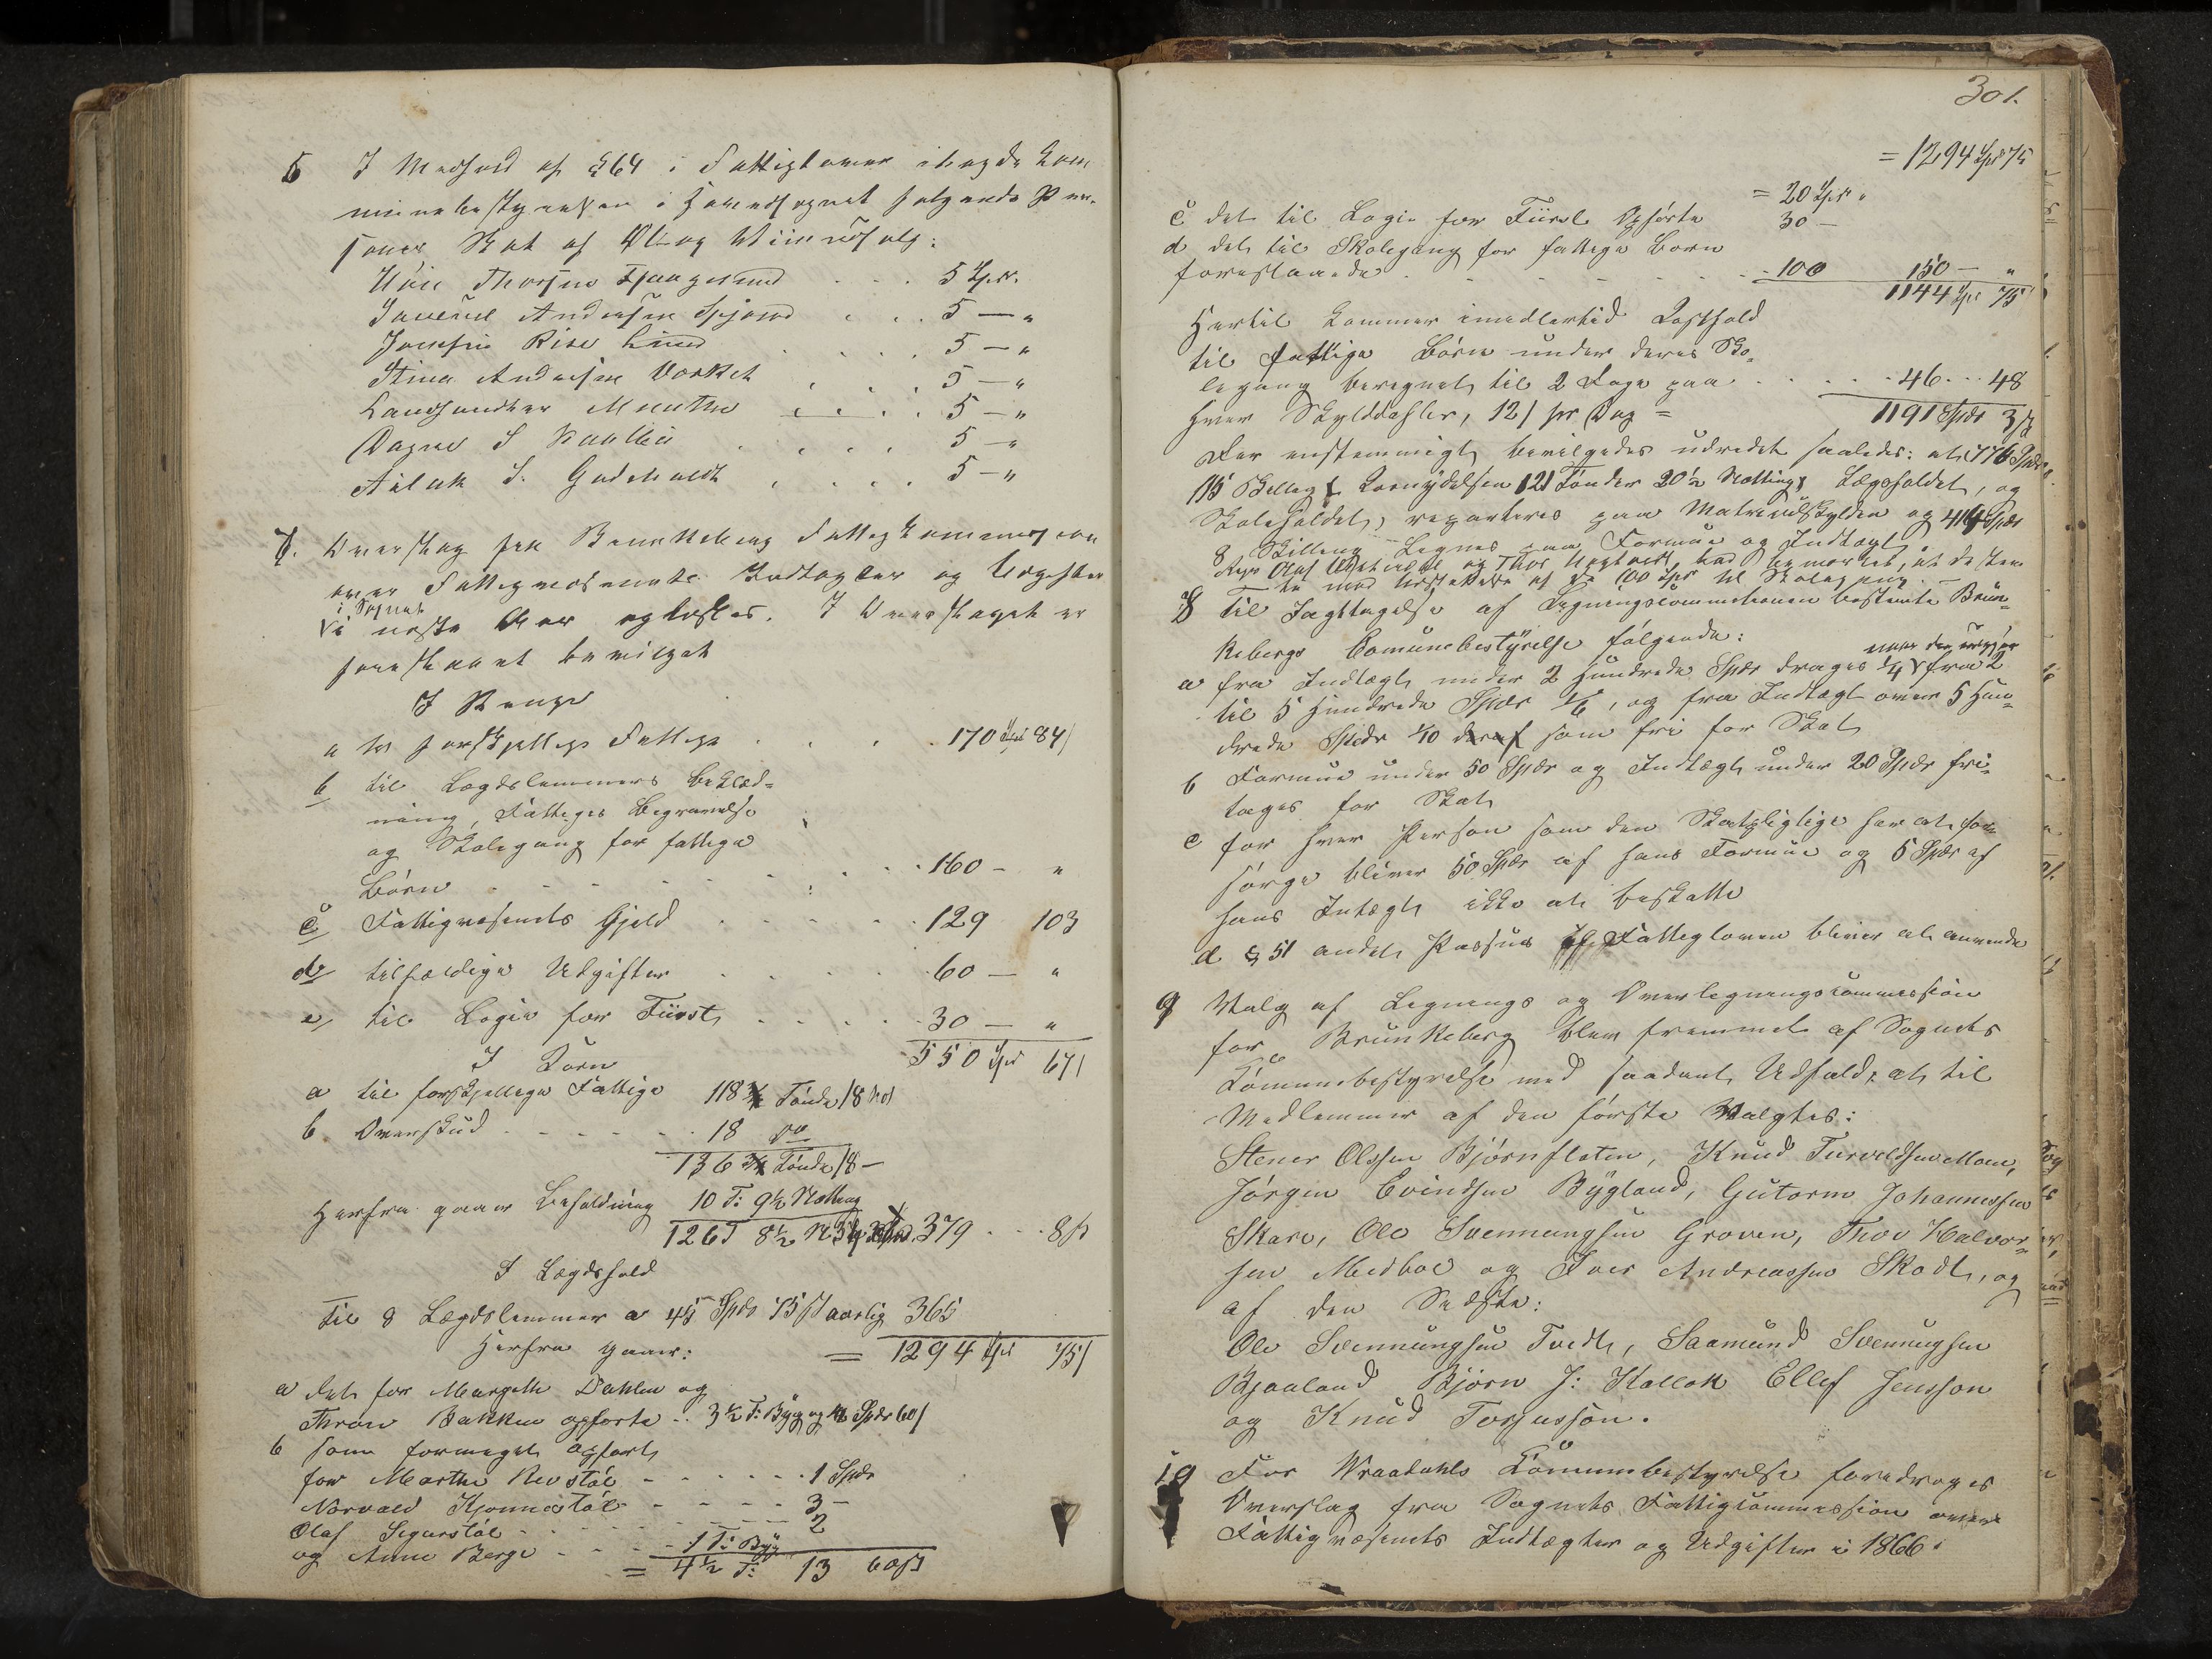 6 I Medhold af § 64 i Fattigloven ilagde Com-
munebestyrelsen i Hovedsognet følgende Per-
soner Skat af
5 Spd.
5 — "
5 — "
Stina Andersen 5 — "
Landhandler Munthe 5 — "
Dagne S 5 — "
Aslak S. 5 — "
7. Overslag fra Brunkeberg Fattigkommission
over Fattigvæsenets Indtægter og Udgifter
i Sognet
i næste Aar oplæstes. I Overslaget er
foreslaaet bevilget
I Penge
a til forskjellige Fattige 170 Spd 84 ß
b til Lægdslemmers Beklæd-
ning, Fattiges Begravelse
og Skolegang for fattige
Børn 160 — "
c Fattigvæsenets Gjeld 129 103
d tilfældige Udgifter 60 — "
e til Logie for Tiurst 30 — "
550 Spd 67 ß
I Korn
a til forskjellige Fattige 118 3/4 Tønde
b. Overskud 18 do
136 3/4 Tønde
Herfra gaaer Beholdning 10 T: 9 1/2 Sætting
126 T 8 1/2 379 8 ß
I Lægdshold
til 8 Lægdslemmer a 45 Spdr 75 ß aarlig 365
Herfra gaaer: = 1294 Spd 75 ß
a det for Margethe Dahlen og
Thron Bakken opførte 3 1/2 T: Byg og Spdr 60 ß
b som formeget opført
for Marthe 1 Spdr
Norvald 3 —
Olaf 2
og Anne Berge 1 T: Byg
= 4 1/2 T: 13 60 ß
301.
= 1294 Spd 75
= 20 Spd "
c det til Logie for Tiurst Opførte 30 —
d det til Skolegang for fattige Børn
foreslaaede 100 150 — "
1144 Spd 75
Hertil kommer imidlertid Kosthold
til fattige Børn under deres Sko-
legang beregnet til 2 Dage paa 46 48
hver Skylddaler, 12 ß pr Dag =
1191 Spdr 3 ß
Der enstemmigt bevilgedes udredet saaledes: at 776 Spdr
115 Skilling Kornydelsen 121 Tønder 20 1/2 Sætting Lægdholdet, og
Skoleholdet, reparteres paa Matriculskylden og Spdr
8 Skilling Lignes paa Formue og Indtægt
Rep. Olaf og Thor bad bemærket, at de stem-
te mod Udsættelse af de 100 Spd til Skolegang.
8 Til Iagttagelse af Ligningscommissionen bestemte Brun-
kebergs Comunebestyrelse følgende:
a fra Indtægt under 2 Hundrede Spdr drages 1/4 fra 2
til 5 Hundrede Spdr 1/6, og fra Indtægt over 5 Hun-
drede Spdr 1/10 deraf som fri for Skat
b Formue under 50 Spdr og Indtægt under 20 Spdr fri-
tages for Skat
c for hver Person som den Skatpligtige har at for-
sørge bliver 50 Spdr af hans Formue og 5 Spdr af
hans Intægt ikke at beskatte
d § 51 andet Passus Fattigloven bliver at anvende
9 Valg af Lignings og Overligningscommission
for Brunkeberg blev fremmet af Sognets
Comunebestyrelse med saadant Udfald: at til
Medlemmer af den første Valgtes:
Stener Olssen Bjørnflaten, Knud Torvaldsen Moen,
Jørgen Evindsen Bygland, Gutorm Johannessen
Skare, Ole Svenningsen Groven, Thov Halvor-
sen Medboe og Iver Andreassen Skodt, og
af den Sidste:
Ole Svenningsen Tvedt, Saamund Svenningsen
Bjaaland Bjørn J: Kallak Ellef Jensson
og Knud Torjussøn.
10 For Vraadahls Comunebestyrelse foredroges
Overslag fra Sognets Fattigcommission over
Fattigvæsenets Indtægter og Udgifter i 1866.